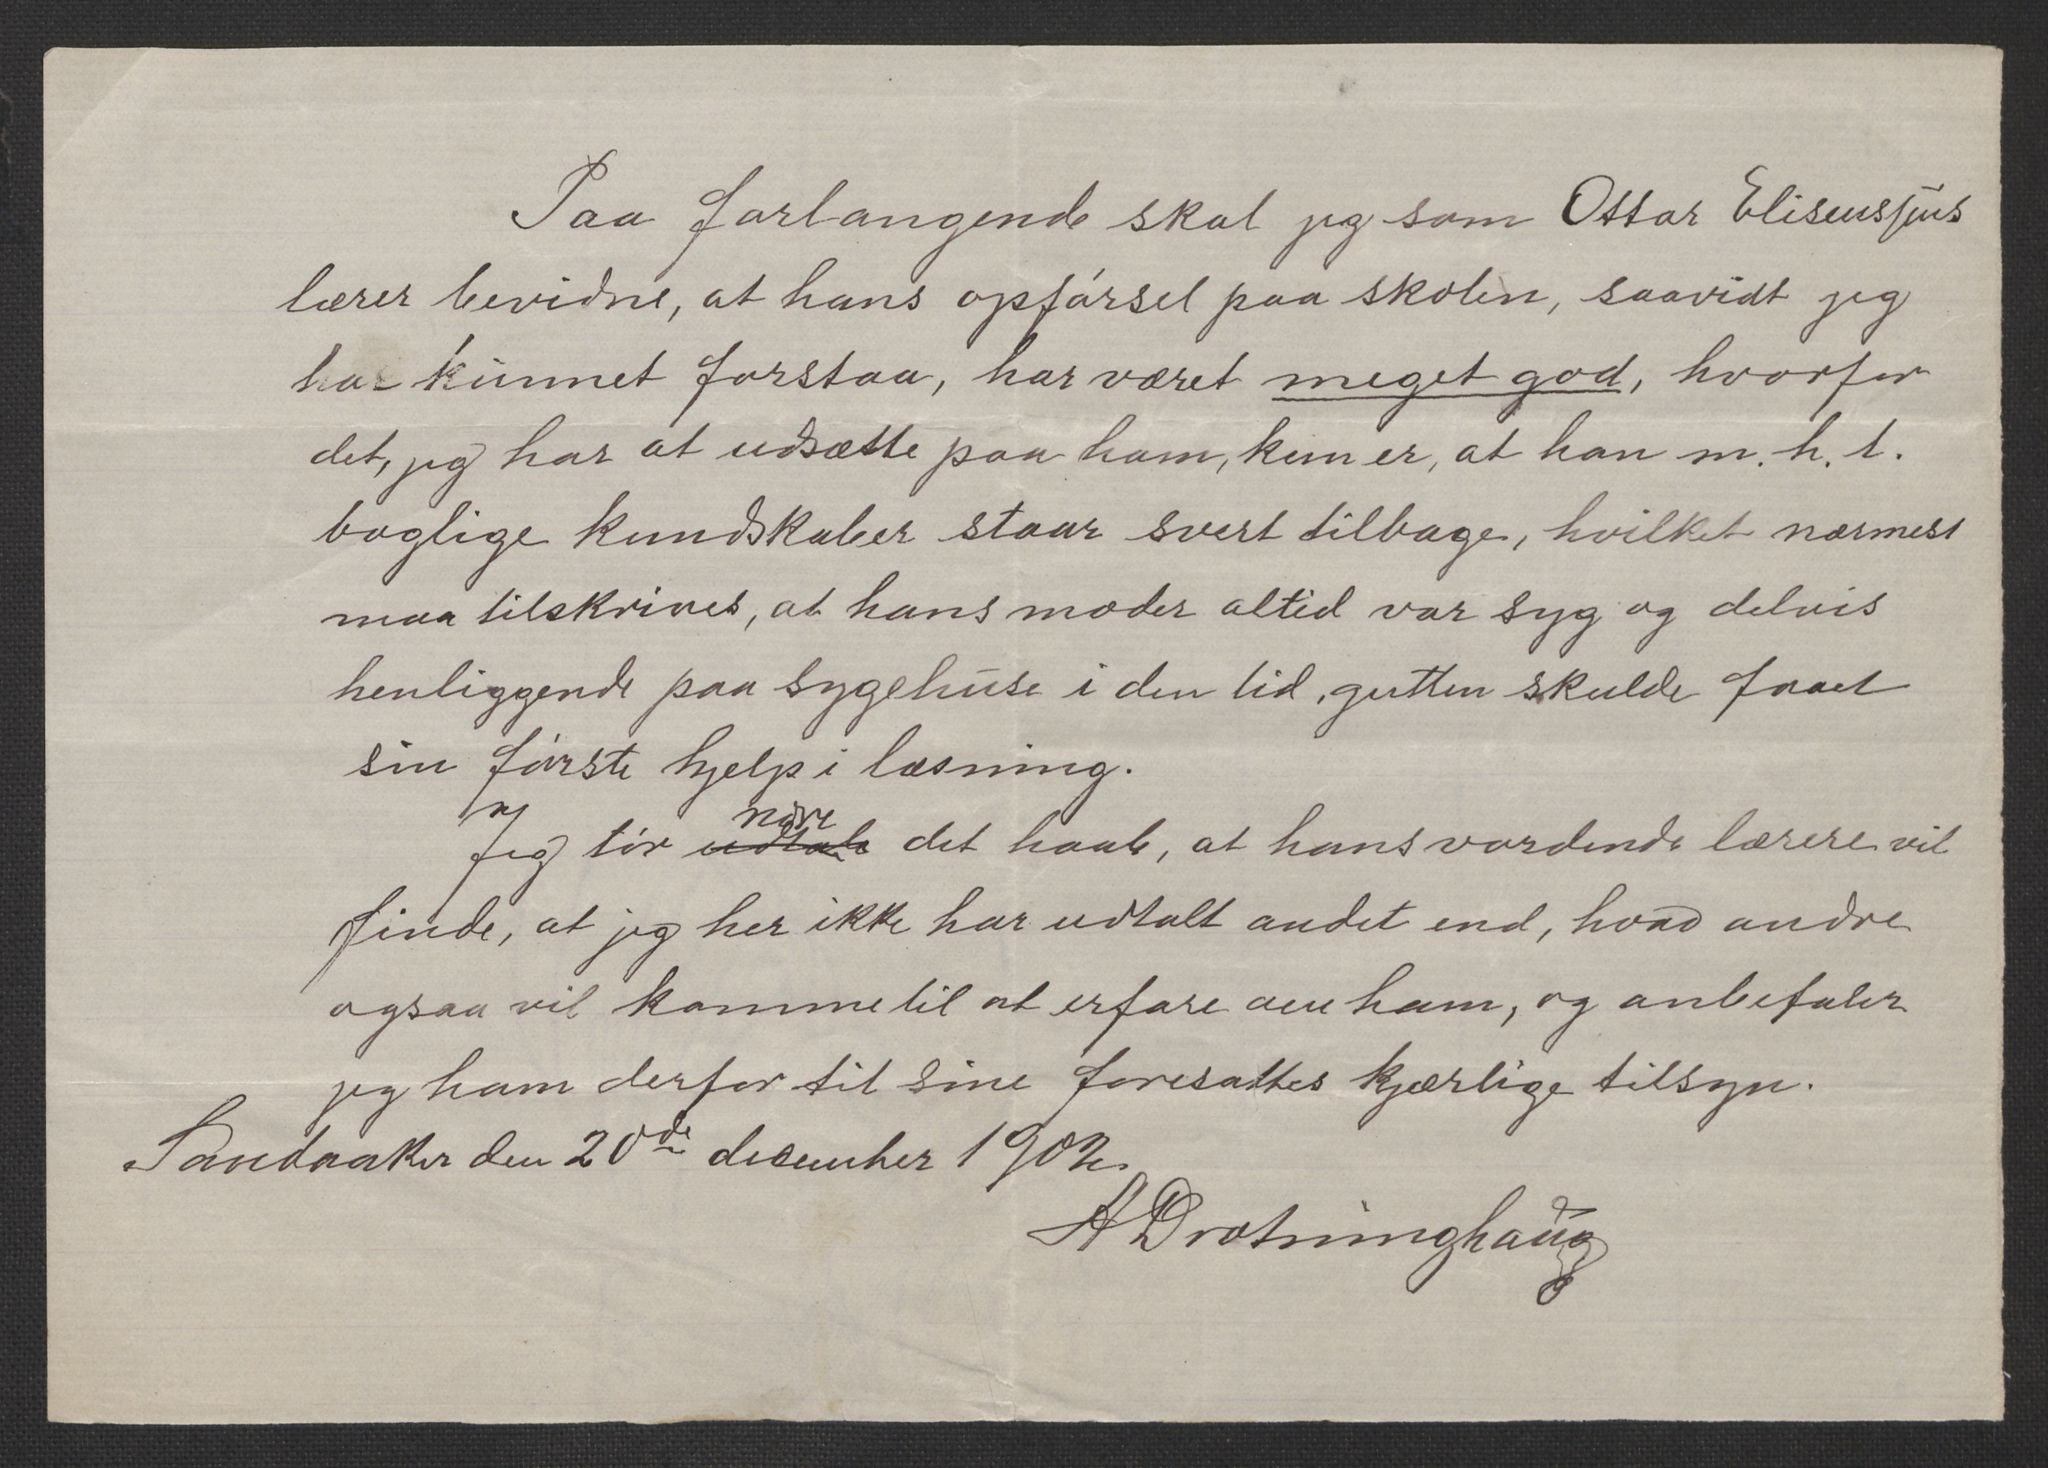 Paa forlangende skal jeg som Ottar Eliseusføns
lærer bevidne, at hans opførsel paa skolen, saavidt jeg
har kunnet forstaa, har været meget god, hvorfor
det, jeg har at udsætte paa ham, kun er, at han m. h. t.
boglige kundskaber staar svert tilbage, hvilket nærmest
maa tilskrives, at hans moder altid var syg og delvis
henliggende paa sygehuse i den tid, gutten skulde faaet
sin første hjelp i læsning.
Jeg tør nære det haab, at hans vordende lærere vil
finde, at jeg her ikke har udtalt andet end, hvad andre
ogsaa vil komme til at erfare om ham, og anbefaler
jeg ham derfor til sine foresattes kjærlige tilsyn.
Sandaaker den 20de december 1902.
A Drotninghaug